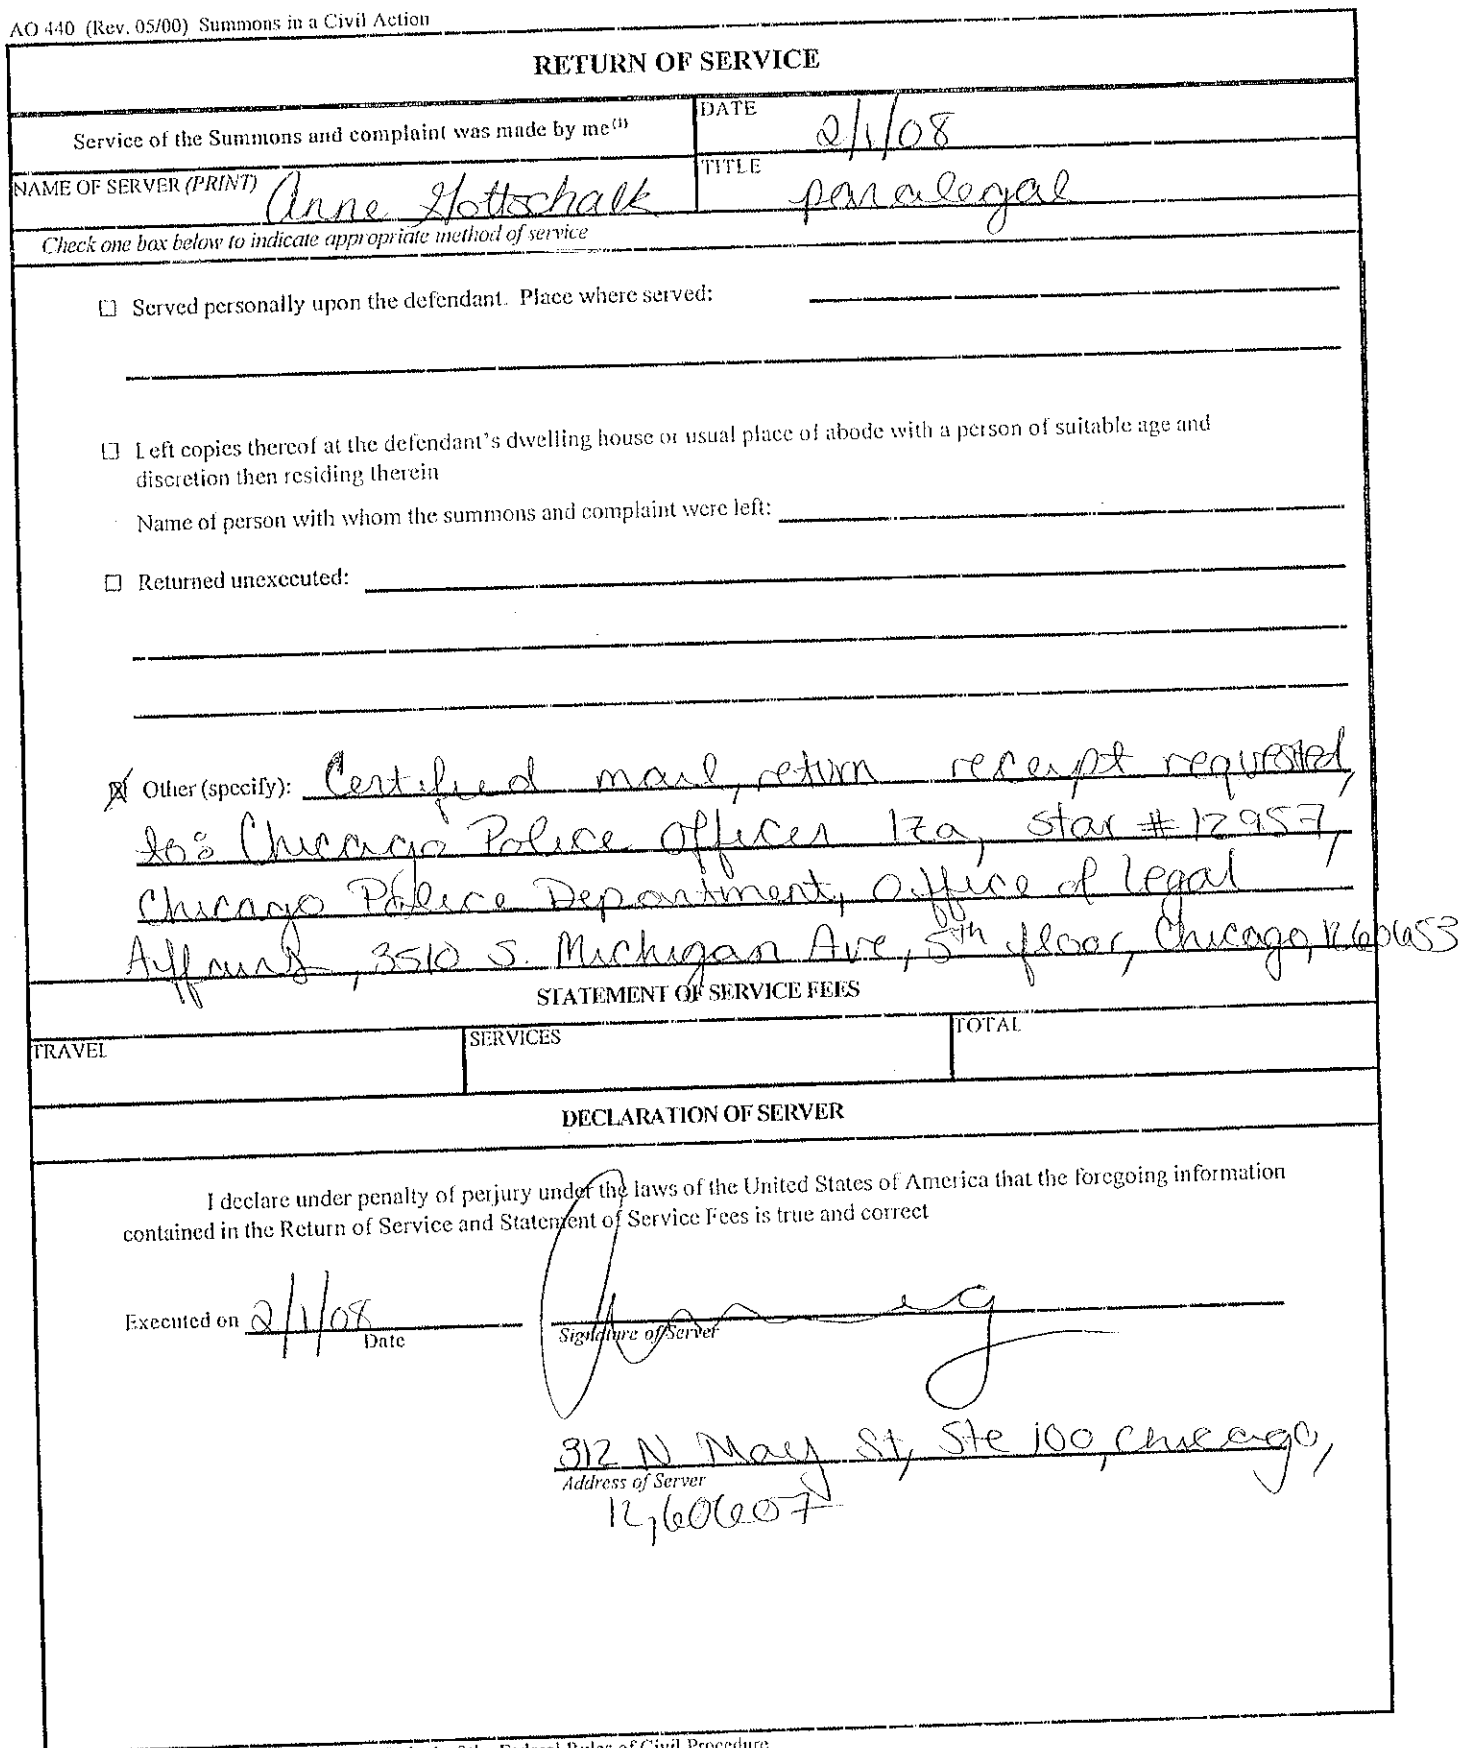 AO 440 (Rev. 05/00) Summons in a Civil Action
RETURN OF SERVICE
Service of the Summons and complaint was made by me(1)
DATE 2/1/08
NAME OF SERVER (PRINT) Anne Gottschalk
TITLE paralegal
Check one box below to indicate appropriate method of service
☐ Served personally upon the defendant. Place where served:
☐ Left copies thereof at the defendant's dwelling house or usual place of abode with a person of suitable age and
discretion then residing therein
Name of person with whom the summons and complaint were left:
☐ Returned unexecuted:
☒ Other (specify): Certified mail, return receipt requested,
to: Chicago Police Officer Iza, star # 12957,
Chicago Police Department, Office of Legal
Affairs, 3510 S. Michigan Ave, 5th floor, Chicago, IL 60653
STATEMENT OF SERVICE FEES
TRAVEL
SERVICES
TOTAL
DECLARATION OF SERVER
I declare under penalty of perjury under the laws of the United States of America that the foregoing information
contained in the Return of Service and Statement of Service Fees is true and correct
Executed on 2/1/08
Date
Signature of Server
312 N May St, Ste 100, Chicago,
Address of Server
IL, 60607
Federal Rules of Civil Procedure